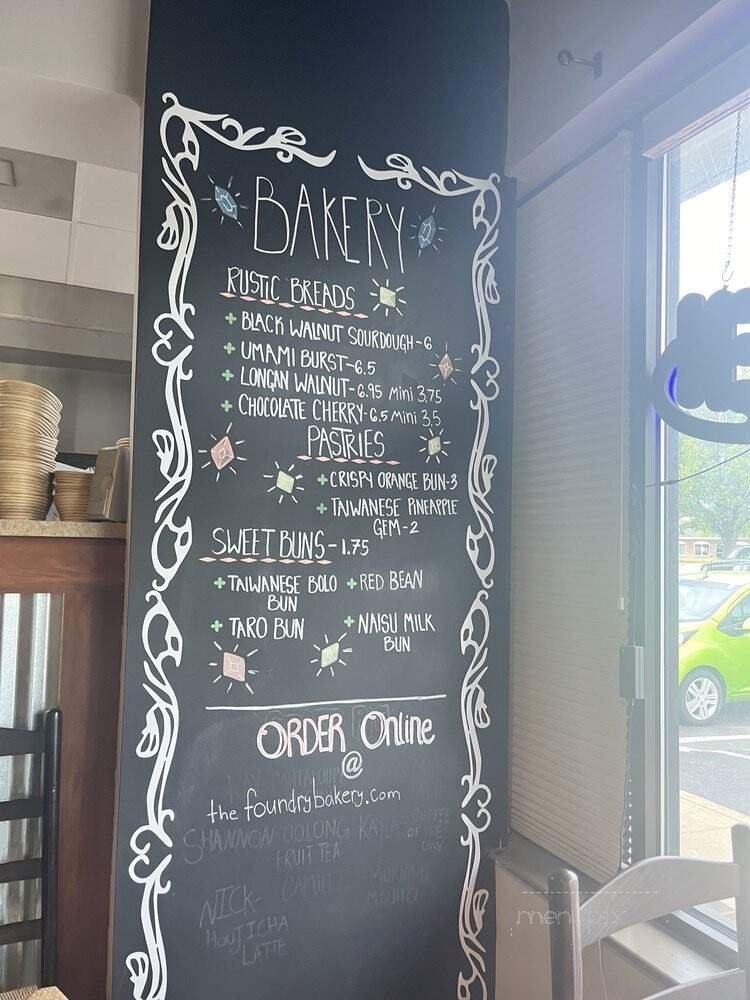 BAKERY
RUSTIC BREADS
+ BLACK WALNUT SOURDOUGH-6
+ UMAMI BURST-6.5
+ LONGAN WALNUT-6.95 Mini 3.75
+ CHOCOLATE CHERRY-6.5 Mini 3.5
PASTRIES
+ CRISPY ORANGE BUN-3
+ TAIWANESE PINEAPPLE
GEM-2
SWEET BUNS-1.75
+ TAIWANESE BOLO
BUN
+ RED BEAN
+ TARO BUN
+ NAISU MILK
BUN
ORDER Online
@
thefoundrybakery.com
SHANNON OOLONG
FRUIT TEA
KAYLA-COFFEE
OF THE
DAY
MORNING
MOJITO
NICK-
HOUJICHA
LATTE
menupix